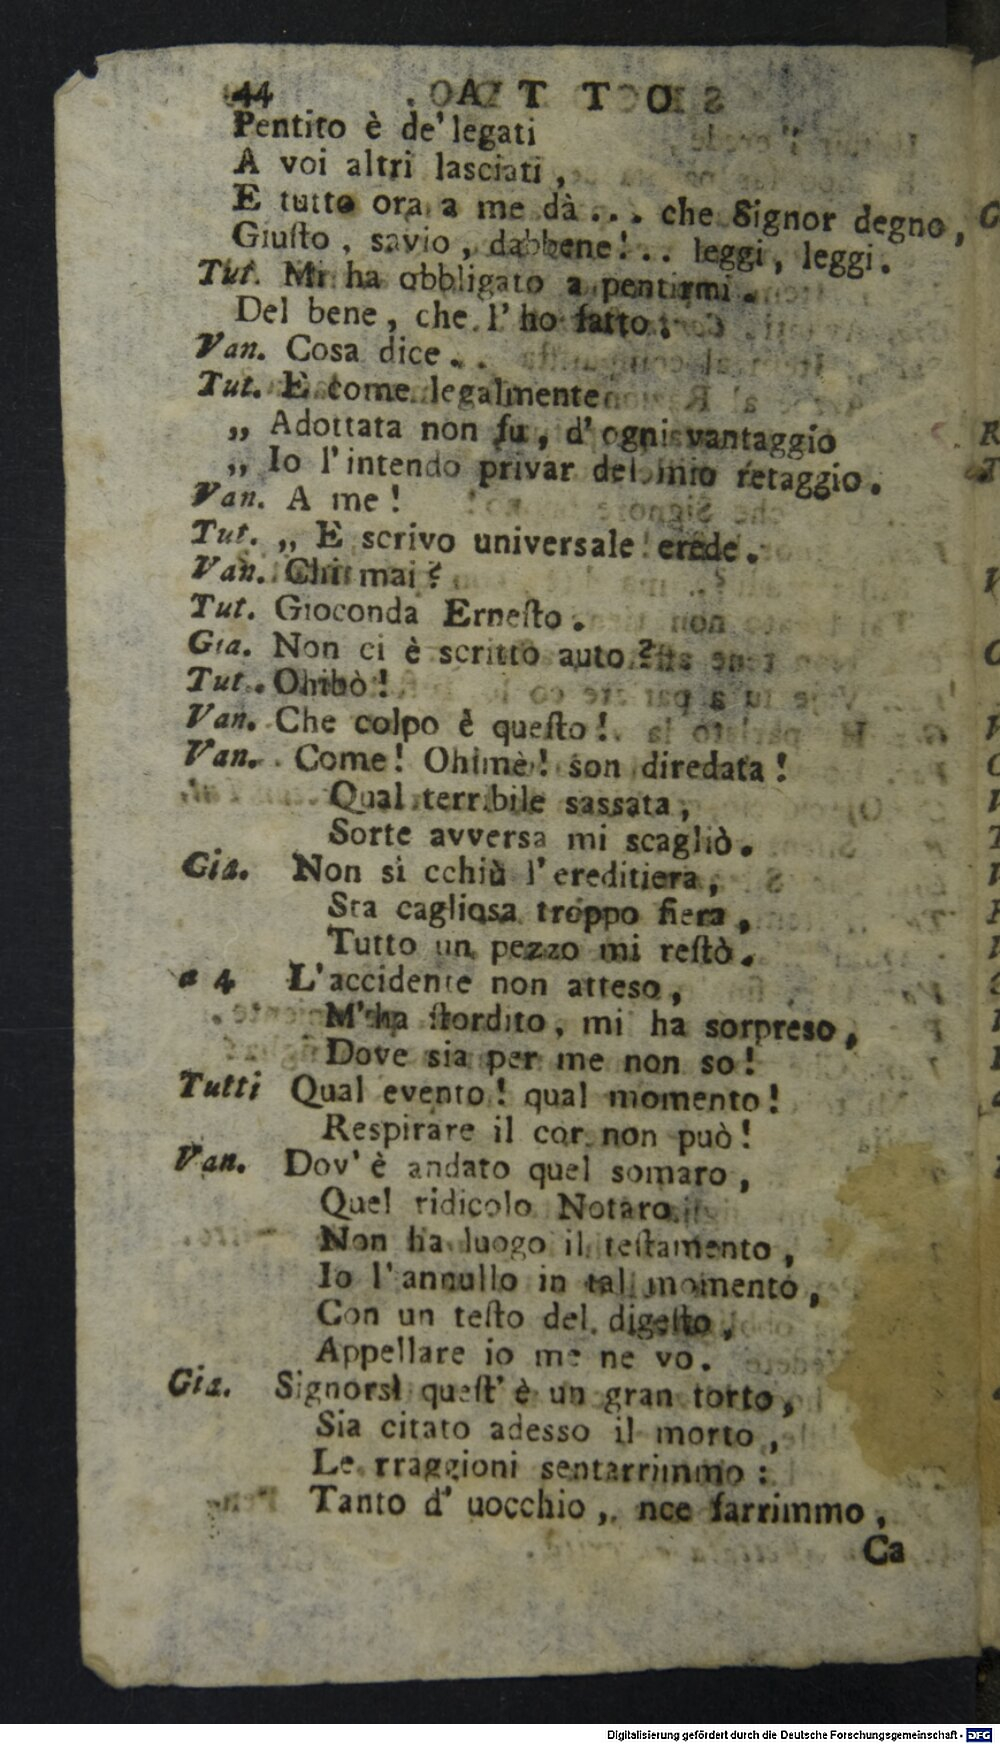 44 ATTO
Pentito è de' legati
A voi altri lasciati,
E tutto ora a me dà... che Signor degno,
Giuſto, savio, dabbene!.. leggi, leggi.
Tut. Mi ha obbligato a pentirmi.
Del bene, che l' ho fatto:
Van. Cosa dice..
Tut. E come legalmente
„ Adottata non fu, d' ogni vantaggio
„ Io l' intendo privar del mio retaggio.
Van. A me!
Tut. „ E scrivo universale erede.
Van. Chi mai?
Tut. Gioconda Erneſto.
Gia. Non ci è scritto auto?
Tut. Ohibò!
Van. Che colpo è queſto!
Van. Come! Ohimè! son diredata!
Qual terribile sassata,
Sorte avversa mi scagliò.
Gia. Non si cchiù l' ereditiera,
Sta cagliosa troppo fiera,
Tutto un pezzo mi reſtò.
a 4 L' accidente non atteso,
M' ha ſtordito, mi ha sorpreso,
Dove sia per me non so!
Tutti Qual evento! qual momento!
Respirare il cor non può!
Van. Dov' è andato quel somaro,
Quel ridicolo Notaro.
Non ha luogo il teſtamento,
Io l' annullo in tal momento,
Con un teſto del digeſto,
Appellare io me ne vo.
Gia. Signorsì queſt' è un gran torto,
Sia citato adesso il morto,
Le rraggioni sentarrimmo:
Tanto d' uocchio, nce farrimmo,
Ca
Digitalisierung gefördert durch die Deutsche Forschungsgemeinschaft - DFG